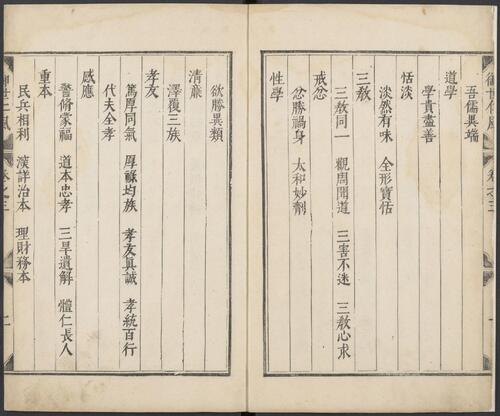 卷之三
吾儒異端
道學
學貴盡善
恬淡
淡然有味 全形寶恬
三教
三教同一 觀周聞道 三害不迷 三教心求
戒忿
忿勝禍身 太和妙劑
性學
欲勝異類
清亷
澤覆三族
孝友
篤厚同氣 厚祿均族 孝友真誠 孝統百行
代夫全孝
感應
警脩蒙福 道本忠孝 三旱遺解 體仁長人
重本
民兵相利 演詳治本 理財務本
卷之三